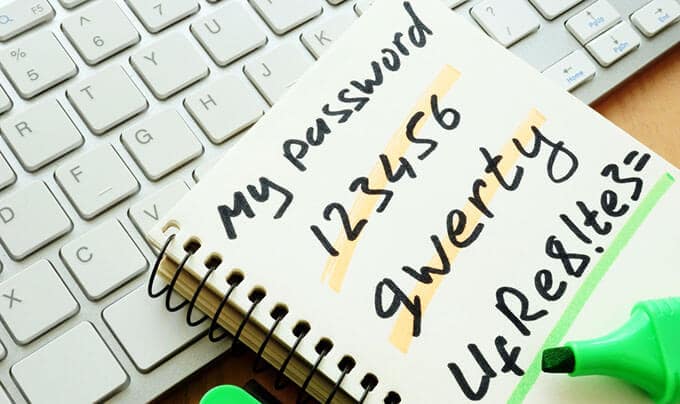 My password
123456
qwerty
UfRe8!te3=
F5
% 5
^ 6
& 7
R T Y U
D F G H J K
X C V
PgUp
PgDn
Home
End